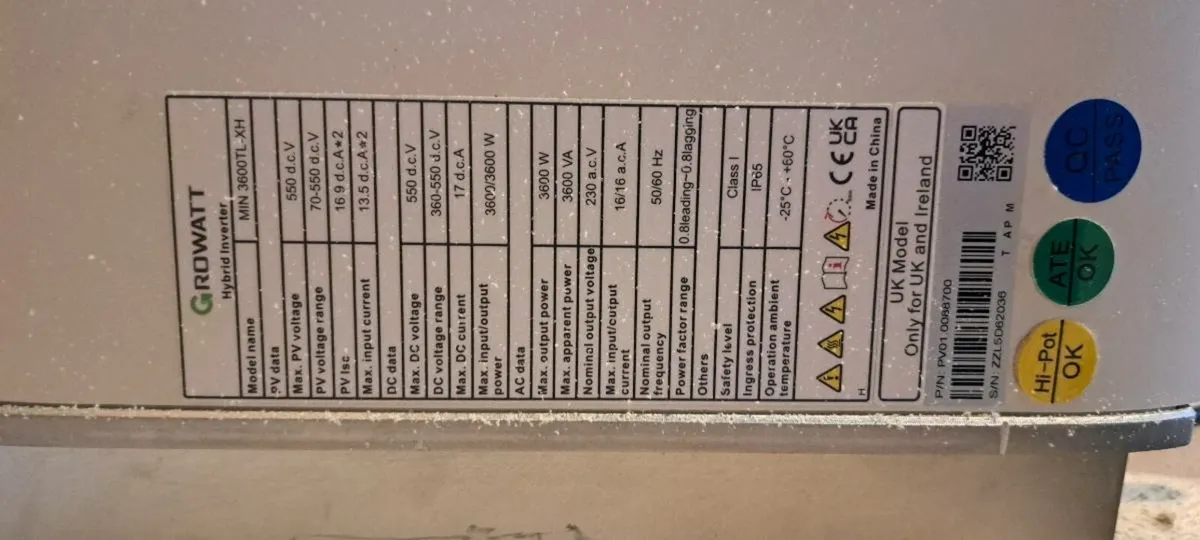 GROWATT
Hybrid Inverter
Model name MIN 3600TL-XH
PV data
Max. PV voltage 550 d.c.V
PV voltage range 70-550 d.c.V
PV Isc 16.9 d.c.A*2
Max. input current 13.5 d.c.A*2
DC data
Max. DC voltage 550 d.c.V
DC voltage range 360-550 d.c.V
Max. DC current 17 d.c.A
Max. input/output power 3600/3600 W
AC data
Max. output power 3600 W
Max. apparent power 3600 VA
Nominal output voltage 230 a.c.V
Max. input/output current 16/16 a.c.A
Nominal output frequency 50/60 Hz
Power factor range 0.8leading~0.8lagging
Others
Safety level Class I
Ingress protection IP65
Operation ambient temperature -25°C - +60°C
CE UK CA
H Made in China
UK Model
Only for UK and Ireland
P/N: PV01.0088700
S/N: ZZL5D62036
T AP M
Hi-Pot OK
ATE OK
QC PASS